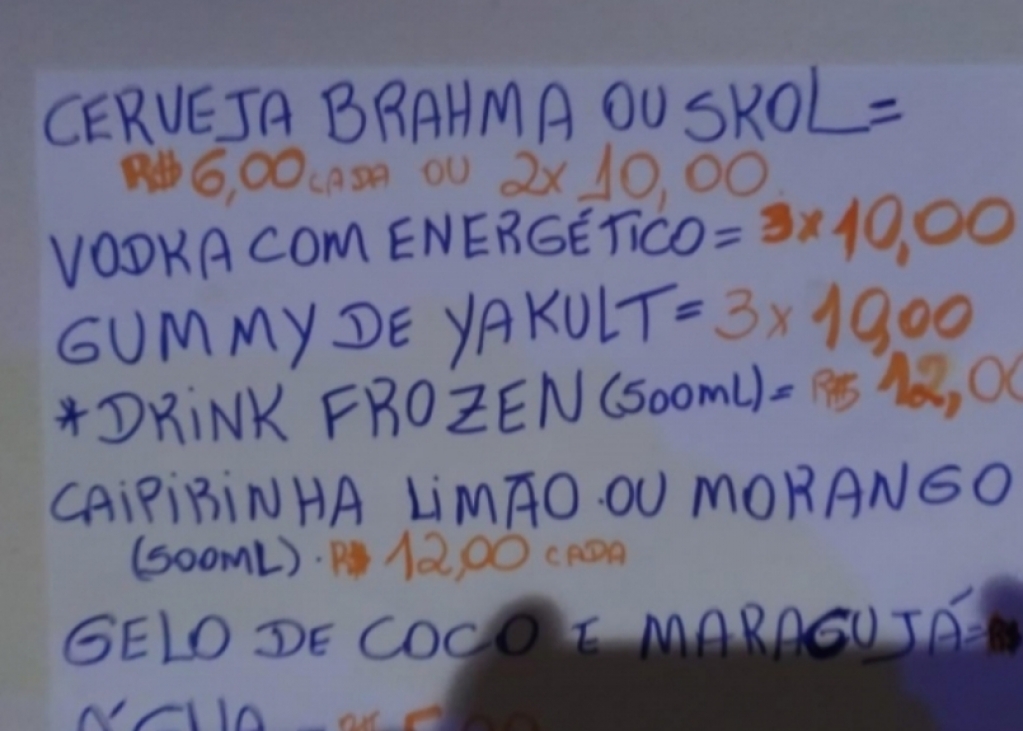 CERVEJA BRAHMA OU SKOL=
R$ 6,00 CADA OU 2x 10,00
VODKA COM ENERGÉTICO= 3x 10,00
GUMMY DE YAKULT= 3x 10,00
*DRINK FROZEN (500mL)= R$ 12,00
CAIPIRINHA LIMÃO OU MORANGO
(500mL). R$ 12,00 CADA
GELO DE COCO E MARAGUJÁ= R$
ÁGUA = R$ 5,00